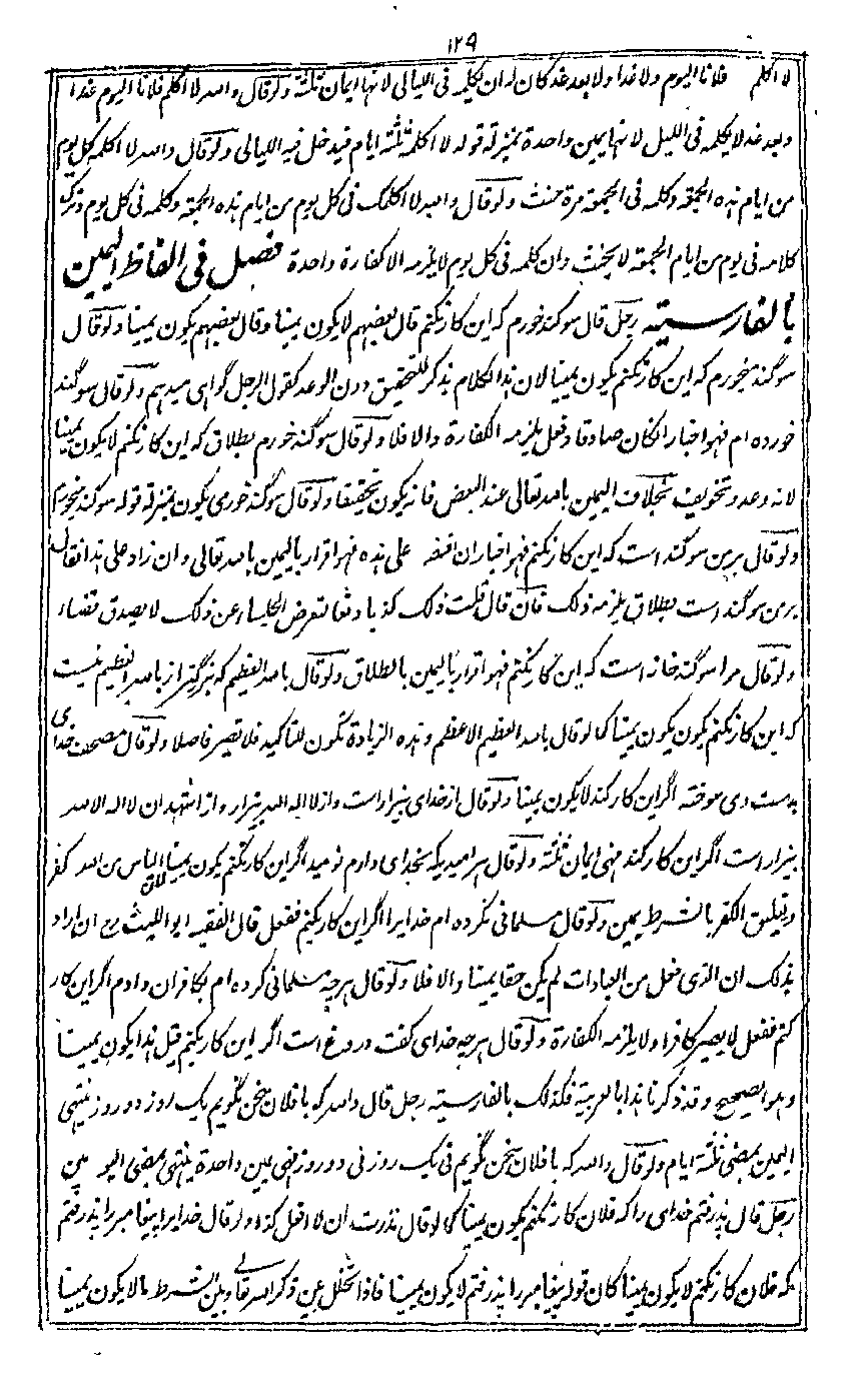 ١٢٩
لا اكلم فلانا اليوم ولا غدا ولا بعد غد كان له ان يكلمه فى الليالى لانها ايمان ثلثة ولو قال والله لا اكلم فلانا اليوم غدا
وبعد غد لا يكلمه فى الليل لانها يمين واحدة بمنزلة قوله لا اكلمه ثلثة ايام فيدخل فيه الليالى ولو قال والله لا اكلمه كل يوم
من ايام هذه الجمعة وكلمه فى الجمعة مرة حنث ولو قال والله لا اكلمك فى كل يوم من ايام هذه الجمعة وكلمه فى كل يوم وترك
كلامه فى يوم من ايام الجمعة لا يحنث وان كلمه فى كل يوم لا يلزمه الا كفارة واحدة فصل فى الفاظ اليمين
بالفارسية رجل قال سوگند خورم كه اين كار نكنم قال بعضهم لا يكون يمينا وقال بعضهم يكون يمينا ولو قال
سوگند ميخورم كه اين كار نكنم يكون يمينا لان هذا الكلام يذكر للتحقيق دون الوعد كقول الرجل گواهى ميدهم ولو قال سوگند
خورده ام فهو اخبار ان كان صادقا وفعل يلزمه الكفارة والا فلا ولو قال سوگند خورم بطلاق كه اين كار نكنم لا يكون يمينا
لانه وعد وتخويف بخلاف اليمين بالله تعالى عند البعض فانه يكون تحقيقا ولو قال سوگند خورى يكون بمنزلة قوله سوگند ميخورم
ولو قال برمن سوگند است كه اين كار نكنم فهو اخبار ان اقتصر على هذه فهو اقرار باليمين بالله تعالى وان زاد على هذا فقال
برمن سوگند است بطلاق يلزمه ذلك فان قال قلت ذلك كذبا دفعا لتعرض الجلساء عن ذلك لا يصدق قضاء
ولو قال مرا سوگند خانه است كه اين كار نكنم فهو اقرار باليمين بالطلاق ولو قال بالله العظيم كه بزرگتر از بالله العظيم نيست
كه اين كار نكنم يكون يكون يمينا كما لو قال بالله العظيم الاعظم وهذه الزيادة تكون للتاكيد فلا تصير فاصلا ولو قال مصحف خداى
بدست وى سوخته اگر اين كار كند لا يكون يمينا ولو قال از خداى بيزار است واز لا اله الا الله بيزار واز اشهد ان لا اله الا الله
بيزار است اگر اين كار كند فهى ايمان ثلثة ولو قال هر اميد يكه بخداى دارم نوميد اگر اين كار نكنم يكون يمينا لان الياس من الله كفر
وتعليق الكفر بالشرط يمين ولو قال مسلمانى نكرده ام خدايرا اگر اين كار بكنم ففعل قال الفقيه ابو الليث رح ان اراد
بذلك ان الذى فعل من العبادات لم يكن حقا يمينا والا فلا ولو قال هر چه مسلمانى كرده ام بكافران دادم اگر اين كار
كنم ففعل لا يصير كافرا ولا يلزمه الكفارة ولو قال هر چه خداى گفت دروغ است اگر اين كار بكنم قيل هذا يكون يمينا
وهو الصحيح وقد ذكرنا هذا بالعربية فكذلك بالفارسية رجل قال والله كه با فلان سخن نگويم يك روز دو روز ينتهى
اليمين بمضى ثلثة ايام ولو قال والله كه با فلان سخن نگويم نى يك روز نى دو روز فهى يمين واحدة ينتهى بمضى اليومين
رجل قال پذرفتم خداى را كه فلان كار نكنم يكون يمينا كما لو قال نذرت ان لا افعل كذا ولو قال خدايرا پيغامبر را پذرفتم
كه فلان كار نكنم لا يكون يمينا كان قوله پيغامبر را پذرفتم لا يكون يمينا فاذا تخلل بين ذكر الله تعالى وبين الشرط ما لا يكون يمينا